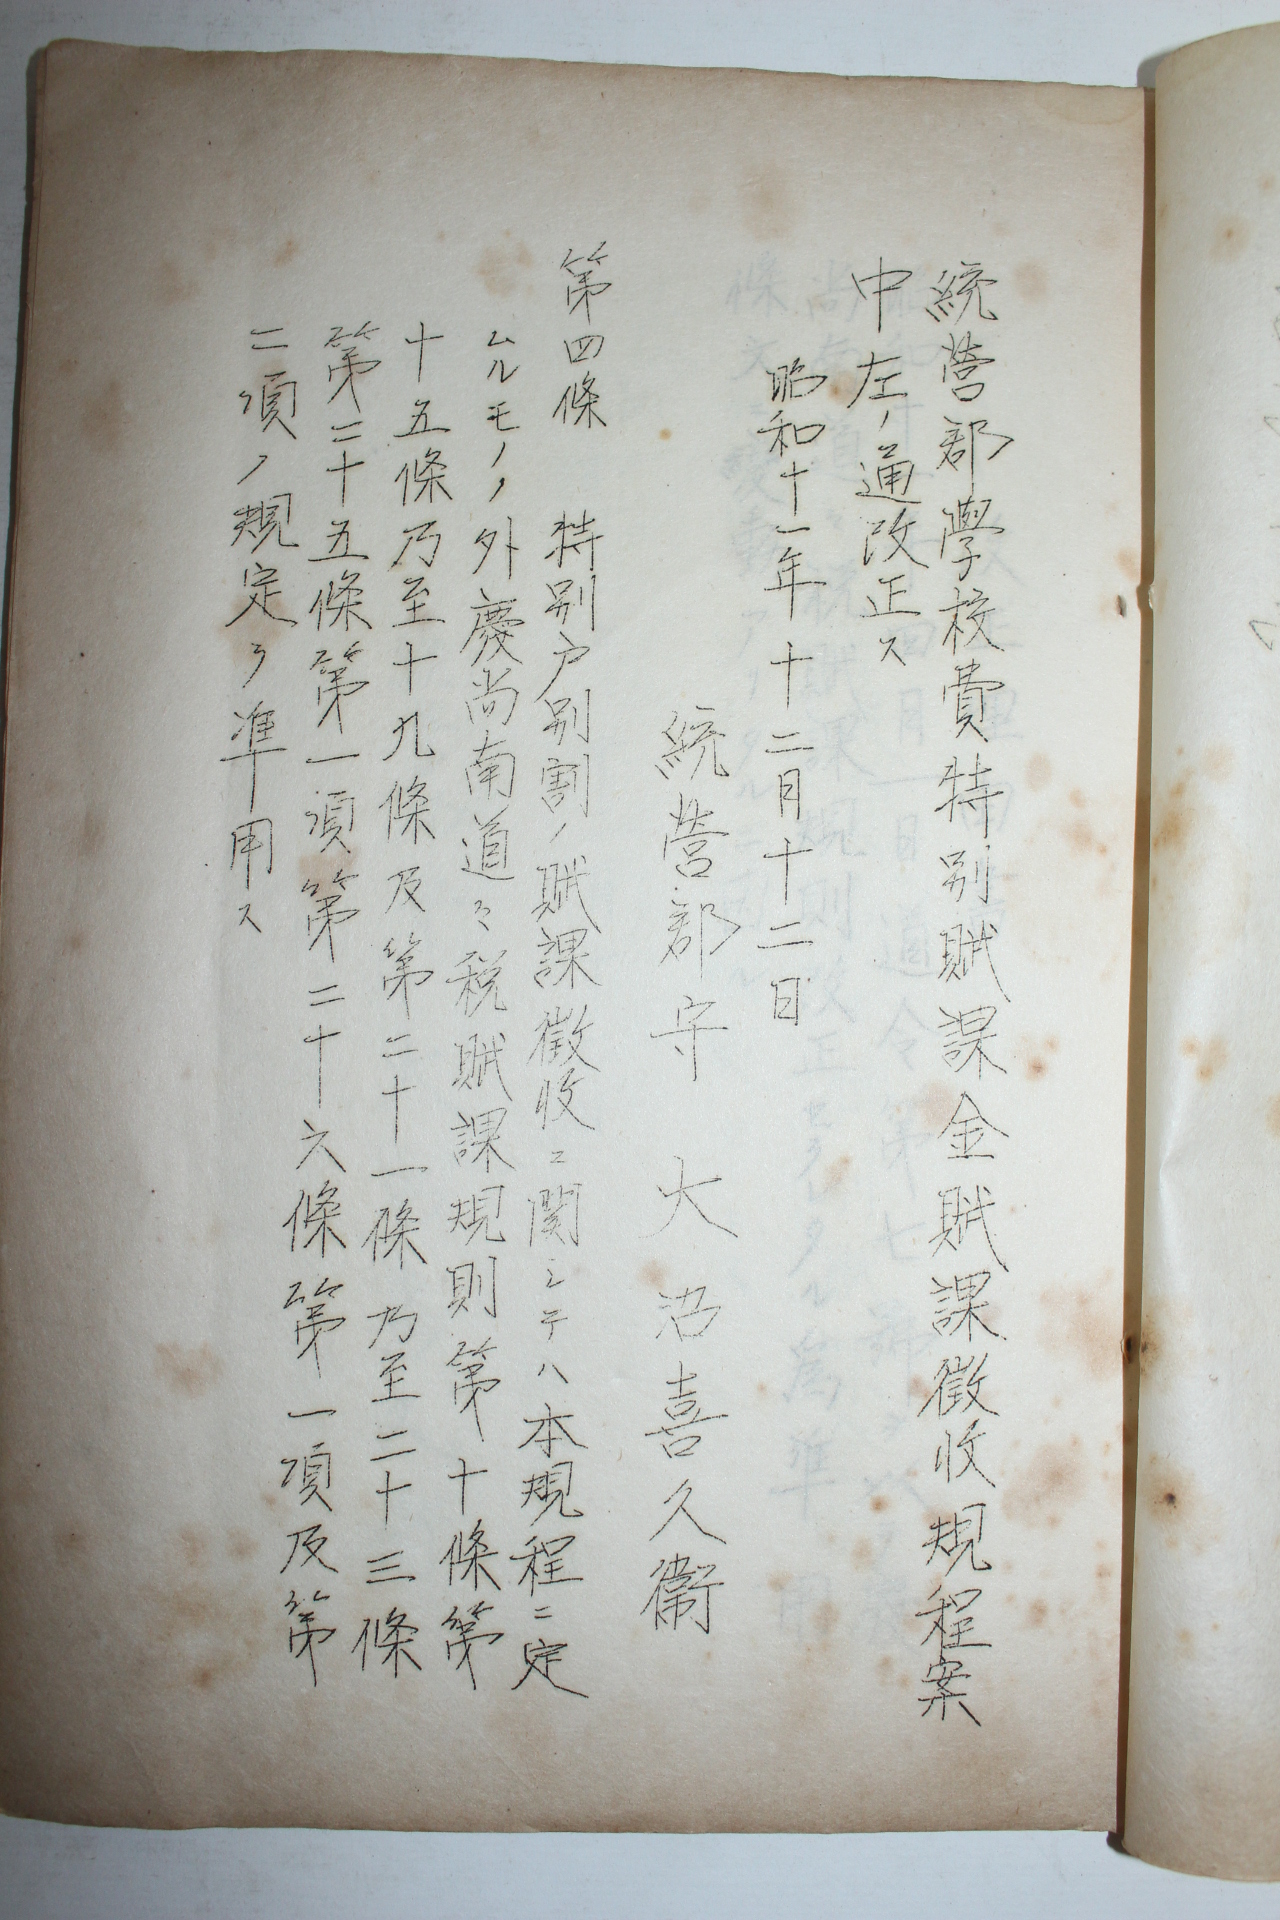 統營郡學校費特別賦課金賦課徵收規程案
中左ノ通改正ス
昭和十一年十二月十二日
統營郡守 大沼喜久衞
第四條 特別戶別割ノ賦課徵收ニ関シテハ本規程ニ定
ムルモノノ外慶尚南道々税賦課規則第十條第
十五條乃至十九條及第二十一條乃至二十三條
第二十五條第一項第二十六條第一項及第
二項ノ規定ヲ準用ス